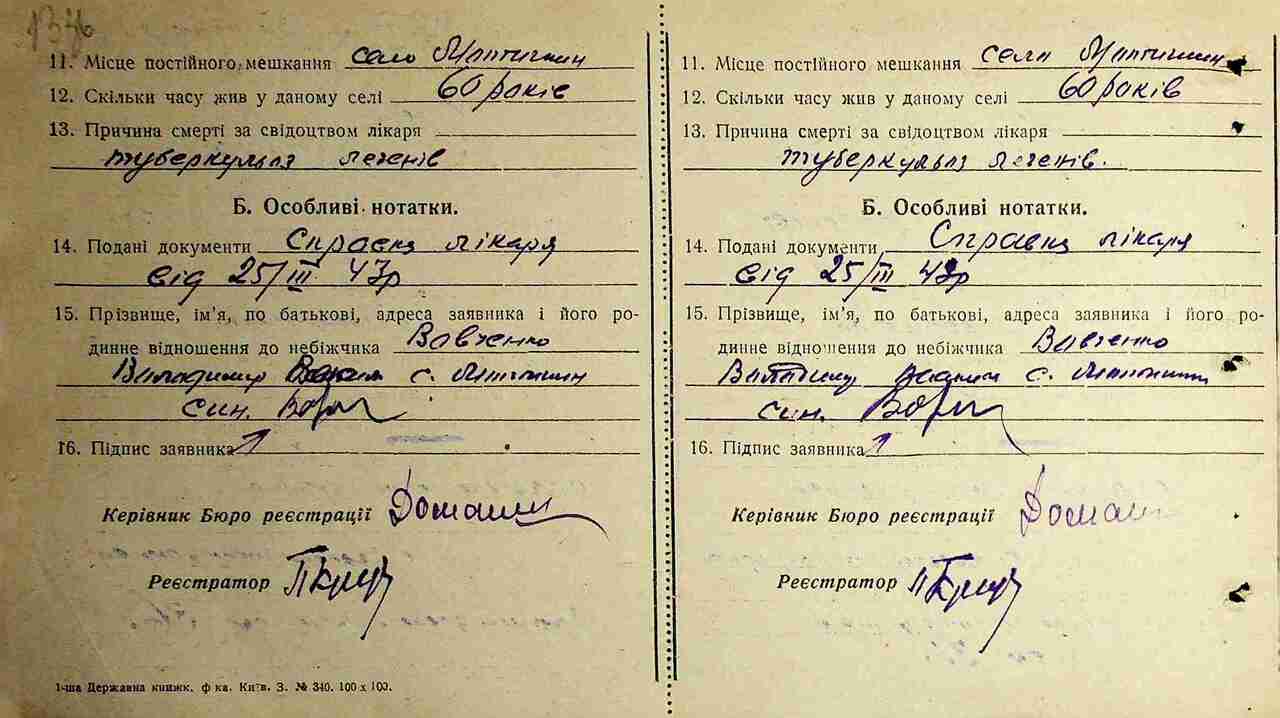 11. Місце постійного мешкання село
12. Скільки часу жив у даному селі 60 років
13. Причина смерті за свідоцтвом лікаря
туберкульоз легенів
Б. Особливі нотатки.
14. Подані документи Справка лікаря
від 25/III 43р
15. Прізвище, ім'я, по батькові, адреса заявника і його ро-
динне відношення до небіжчика Вовченко
Володимир с.
син.
16. Підпис заявника
Керівник Бюро реєстрації
Реєстратор
1-ша Державна книжк. ф-ка. Київ. З. № 340. 100 х 100.
11. Місце постійного мешкання село
12. Скільки часу жив у даному селі 60 років
13. Причина смерті за свідоцтвом лікаря
туберкульоз легенів.
Б. Особливі нотатки.
14. Подані документи Справка лікаря
від 25/III 43р
15. Прізвище, ім'я, по батькові, адреса заявника і його ро-
динне відношення до небіжчика Вовченко
с.
син.
16. Підпис заявника
Керівник Бюро реєстрації
Реєстратор